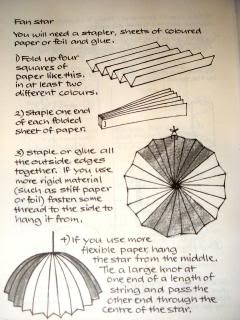 Fan star
You will need a stapler, sheets of coloured
paper or foil and glue.
1) Fold up four
squares of
paper like this,
in at least two
different colours.
2) Staple one end
of each folded
sheet of paper.
3) Staple or glue all
the outside edges
together. If you use
more rigid material
(such as stiff paper
or foil) fasten some
thread to the side to
hang it from.
4) If you use more
flexible paper, hang
the star from the middle.
Tie a large knot at
one end of a length of
string and pass the
other end through the
centre of the star.